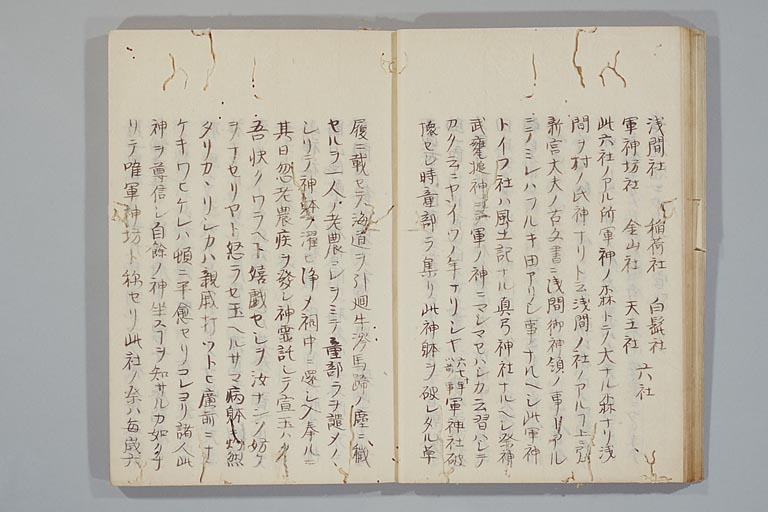 浅間社　稲荷社　白髭社
軍神坊社　金山社　天王社　六社
此六社ノアル所軍神ノ森トテ大ナル森ナリ浅
間ヲ村ノ氏神ナリト云浅間ノ社ノアル
新宮大夫ノ古文書ニ浅間御神領ノ事
ミテミレハフルキ田アリシ事ナルヘシ此軍神
トイフ社ハ風土記ナル真弓神社ナルヘシ祭神
武甕槌神ニテ軍ノ神ニマシマセハシカ云習ハシテ
カク云ニヤイツノ年ナリシヤ六七十年前ノ事軍神社破
壊セシ時童部ラ集リ此神躰ヲ破レタル草
履ニ載セテ海道ヲ引廻牛溲馬蹄ノ塵ニ穢
セルヲ一人ノ老農コレヲミテ童部ラヲ譴メノヽ
シリテ神躰ヲ濯ヒ浄メ祠中ニ還シ入奉ルニ
其日忽老農疾ヲ發シ神霊託シテ宣玉ハク
吾快クワラヘト嬉戯セシヲ汝ナンソ妨ケ
ヲナセリヤト怒ラセ玉ヘルサマ病躰
タリカヽリシカハ親戚打ツトヒ廣前ニナ
ケキワヒケレハ頓ニ平愈セリコレヨリ諸人此
神ヲ尊信シ自餘ノ神坐スヲ知サルカ如クナ
リテ唯軍神坊ト称セリ此社ノ祭ハ毎歳六